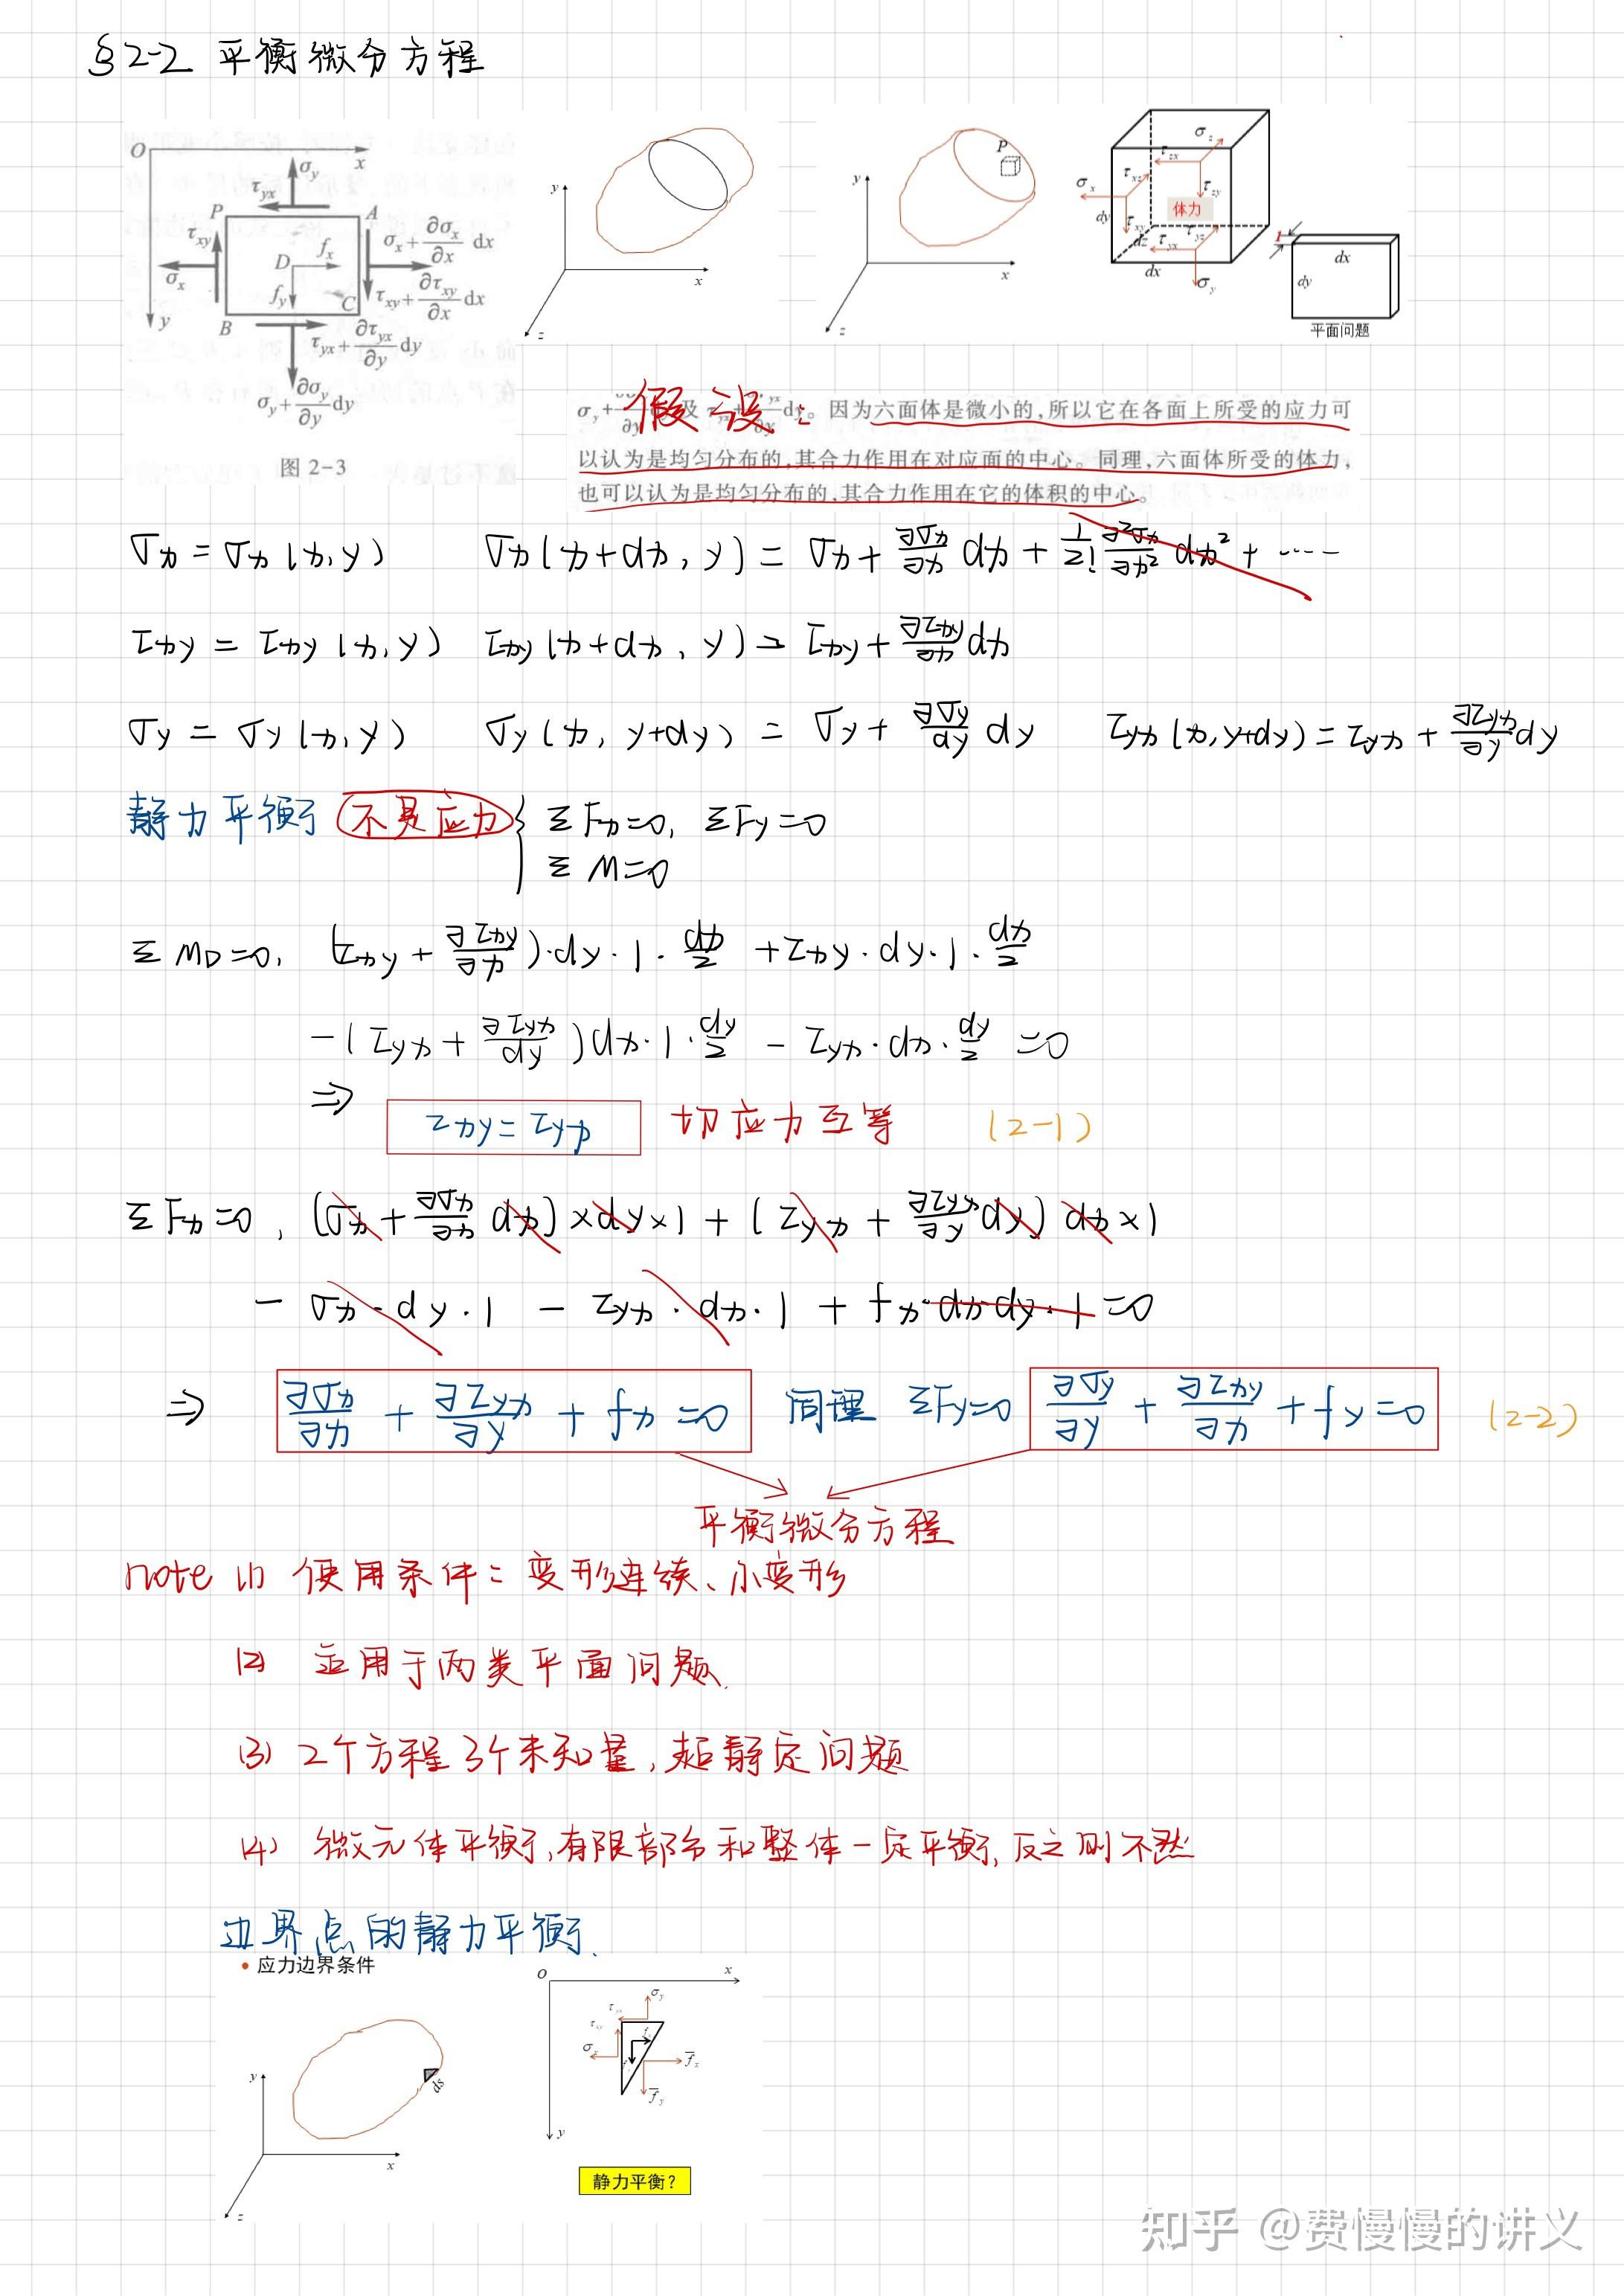 §2-2 平衡微分方程
O x
σy
τyx
P A
τxy σx+∂σx/∂x dx
D fx
σx
fy C τxy+∂τxy/∂x dx
y B
τyx+∂τyx/∂y dy
σy+∂σy/∂y dy
图 2-3
y
x
z
y
P
x
z
σz
τzx
τxz
σx
τzy
dy 体力
τxy
dz τyx τyz
dx
σy
1
dx
dy
平面问题
假设:
σy+ 及 dy。因为六面体是微小的,所以它在各面上所受的应力可
以认为是均匀分布的,其合力作用在对应面的中心。同理,六面体所受的体力,
也可以认为是均匀分布的,其合力作用在它的体积的中心。
σx = σx (x,y) σx (x+dx, y) = σx + ∂σx/∂x dx + 1/2! ∂²σx/∂x² dx² + ······
τxy = τxy (x,y) τxy (x+dx, y) = τxy + ∂τxy/∂x dx
σy = σy (x,y) σy (x, y+dy) = σy + ∂σy/dy dy τyx (x,y+dy) = τyx + ∂τyx/∂y dy
静力平衡 不是应力 { ΣFx=0, ΣFy=0
ΣM=0
ΣMD=0, (τxy + ∂τxy/∂x)·dy·1·dx/2 + τxy·dy·1·dx/2
-(τyx + ∂τyx/dy)dx·1·dy/2 - τyx·dx·dy/2 =0
⇒
τxy = τyx 切应力互等 (2-1)
ΣFx=0, (σx + ∂σx/∂x dx)×dy×1 + (τyx + ∂τyx/∂y dy) dx×1
- σx·dy·1 - τyx·dx·1 + fx·dx·dy·1 =0
⇒ ∂σx/∂x + ∂τyx/∂y + fx =0 同理 ΣFy=0 ∂σy/∂y + ∂τxy/∂x + fy=0 (2-2)
平衡微分方程
note (1) 使用条件: 变形连续、小变形
(2) 适用于两类平面问题.
(3) 2个方程3个未知量,超静定问题
(4) 微元体平衡,有限部分和整体一定平衡,反之则不然
边界点的静力平衡.
• 应力边界条件
y
ds
x
z
O x
σy
τyx
τxy
σx
f̄x
f̄y
y
静力平衡？
知乎 @费慢慢的讲义